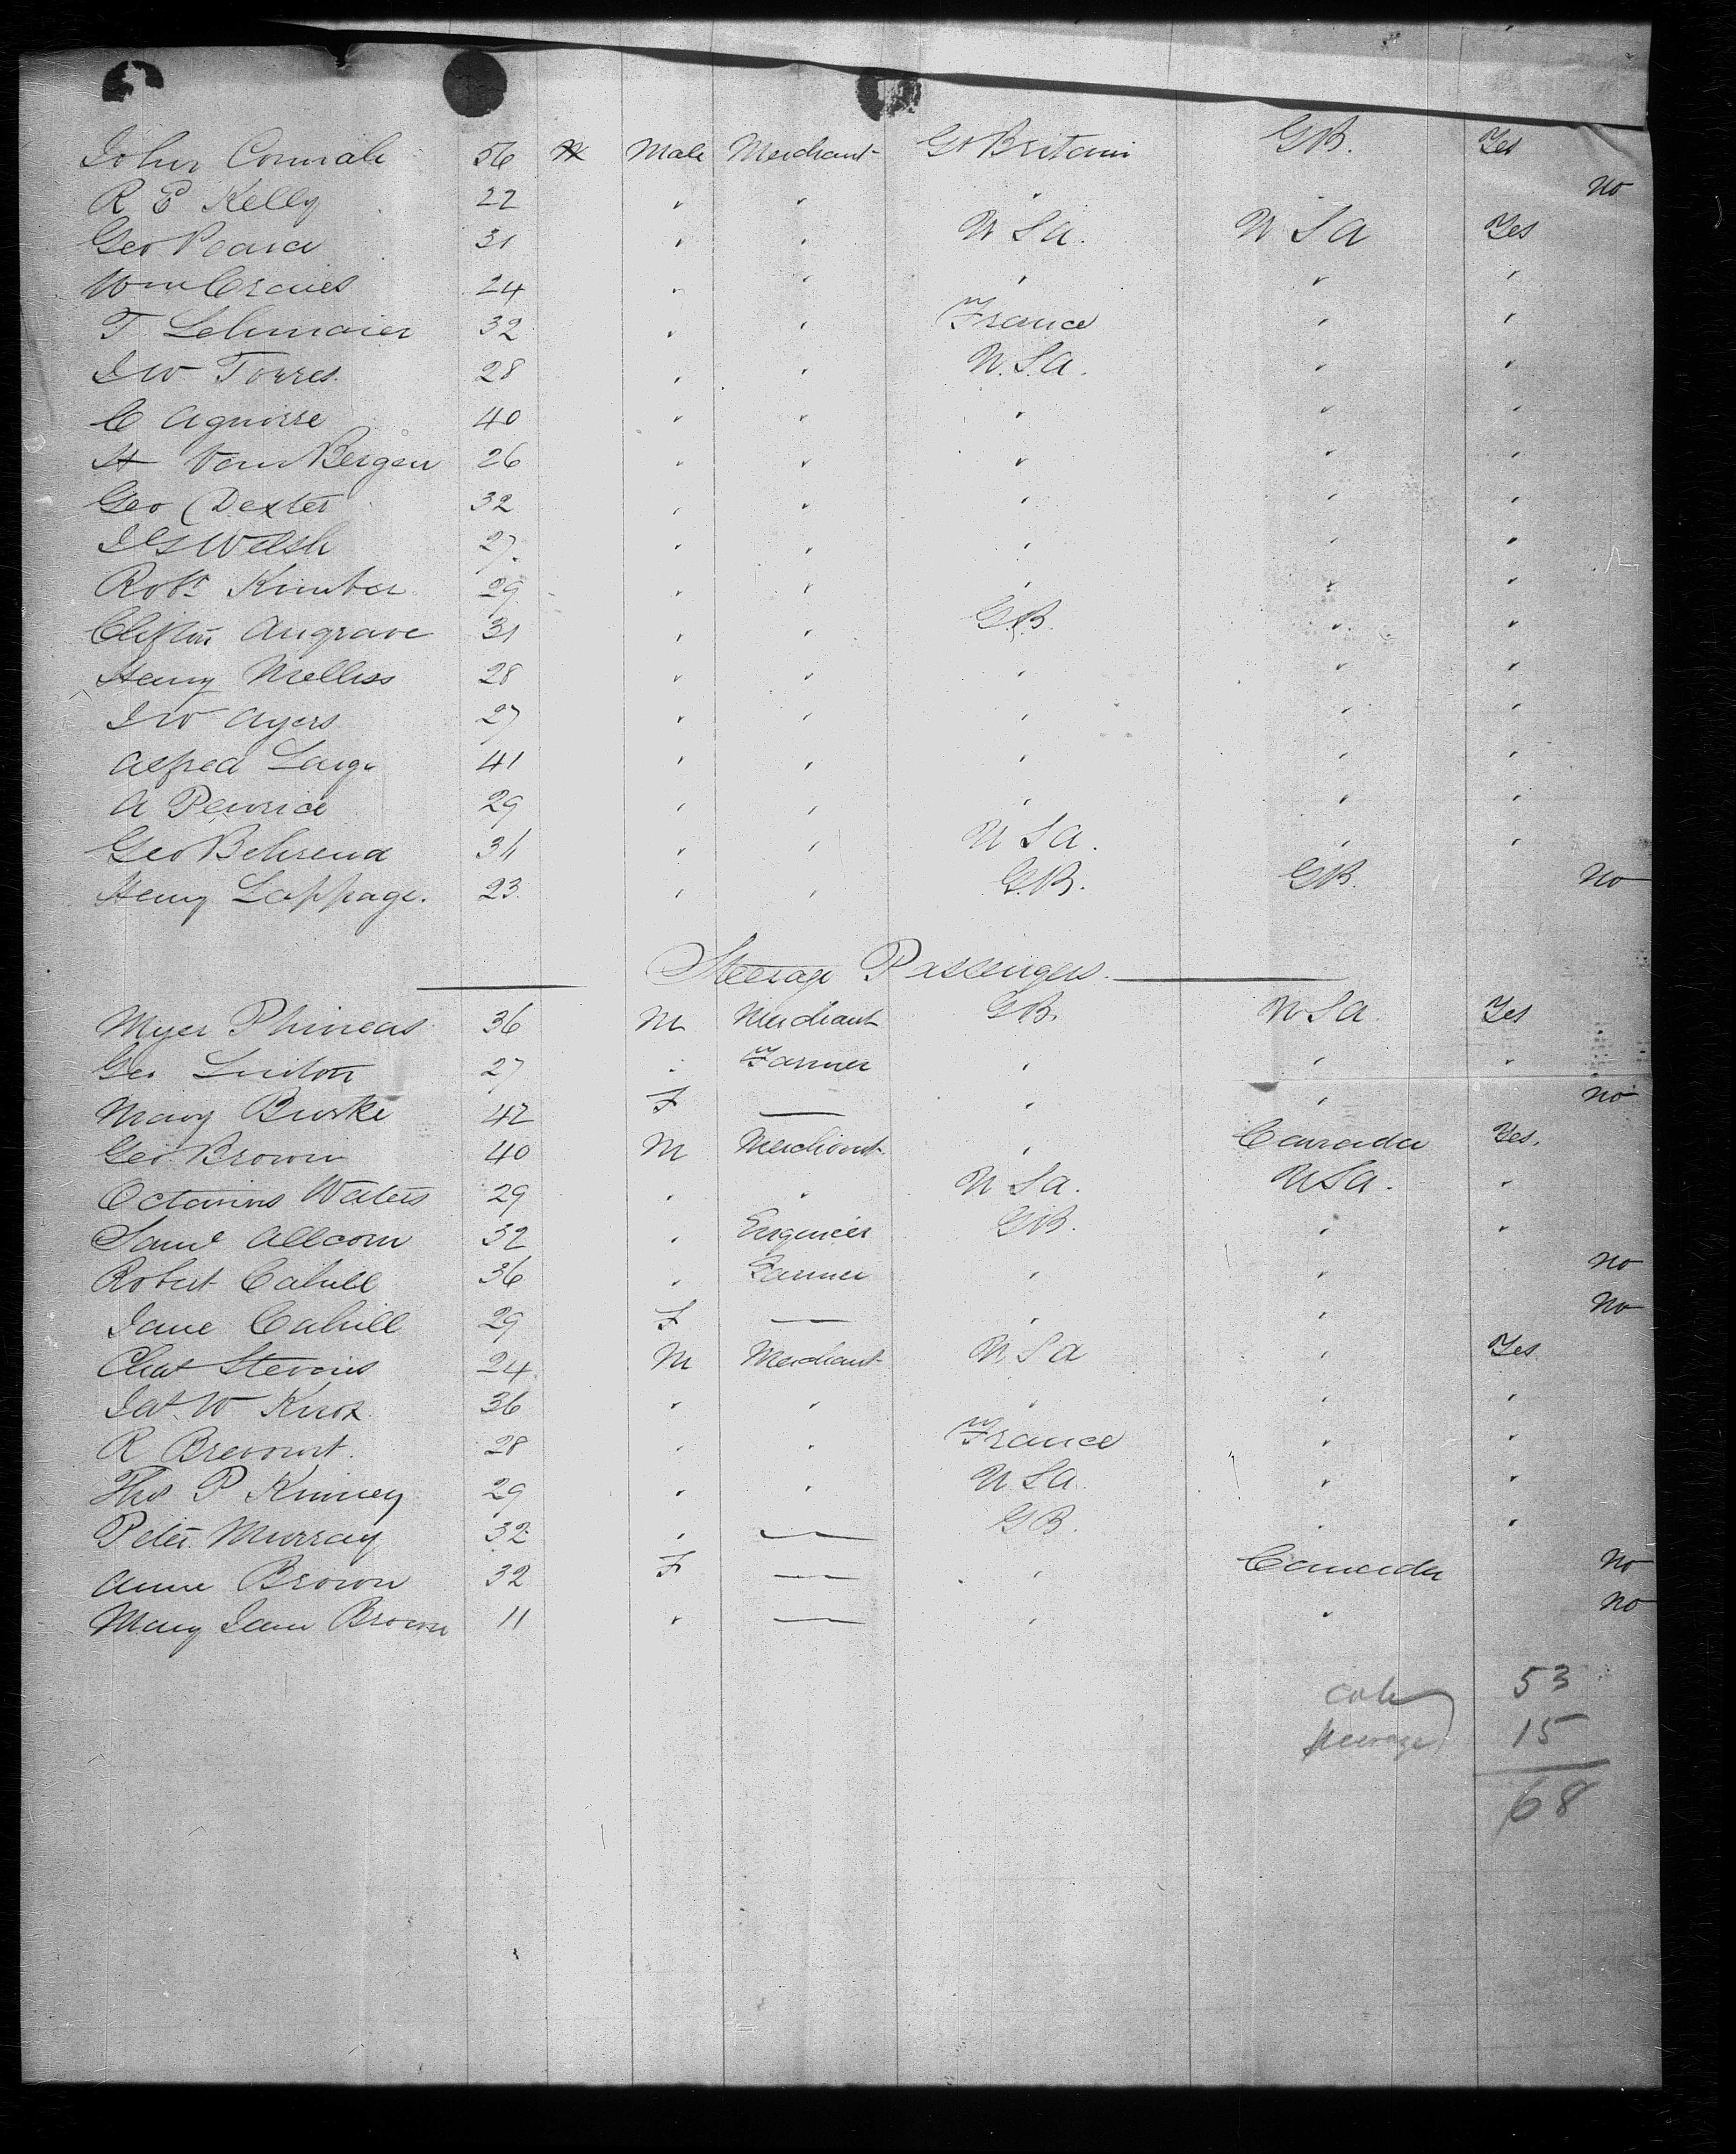 John Connali 56 M Male Merchant Gt Britain GB. Yes
R E Kelly 22 " " " " No
Geo Pearce 31 " " U S A. U S A Yes
Wm Craies 24 " " " " "
T Lehmaier 32 " " France " "
J W Torres. 28 " " U.S.A. " "
C Aguirre 40 " " " " "
H Van Bergen 26 " " " " "
Geo Dexter 32 " " " " "
J G Welsh 27 " " " " "
Robt Kimber 29 " " " " "
Clifton Angrave 31 " " G.B. " "
Henry Melliss 28 " " " " "
J W Ayers 27 " " " " "
Alfred Lang 41 " " " " "
A Penrice 29 " " " " "
Geo Behrend 31 " " U S A. " "
Henry Lappage. 23 " " G.B. GB. No
Steerage Passengers.
Myer Phineas 36 M Merchant GB. U S A. Yes
Geo Linton 27 " Farmer " " "
Mary Burke 42 F — " " No
Geo. Brown 40 M Merchant " Canada Yes.
Octavius Waters 29 " " U S A. U S A. "
Saml Allcorn 32 " Engineer GB. " "
Robert Cahill 36 " Farmer " " No
Jane Cahill 29 F — " " No
Chas Stevens 24 M Merchant U S A " Yes
Jas. W Knox 36 " " " " "
R Brevourt. 28 " " France " "
Thos P Kinney 29 " " U S A. " "
Peter Murray 32 " — GB. " "
Anne Brown 32 F — " Canada No
Mary Jane Brown 11 " — " " No
Cab 53
Steerage 15
68